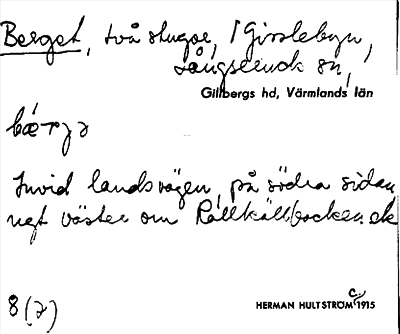 Berget, två stugor, i Gisslebyn,
Långseruds sn,
Gillbergs hd, Värmlands län
bæ´rjə
Invid landsvägen, på södra sidan
väster om Rållkällbacken
8 (7)
HERMAN HULTSTRÖM C. 1915